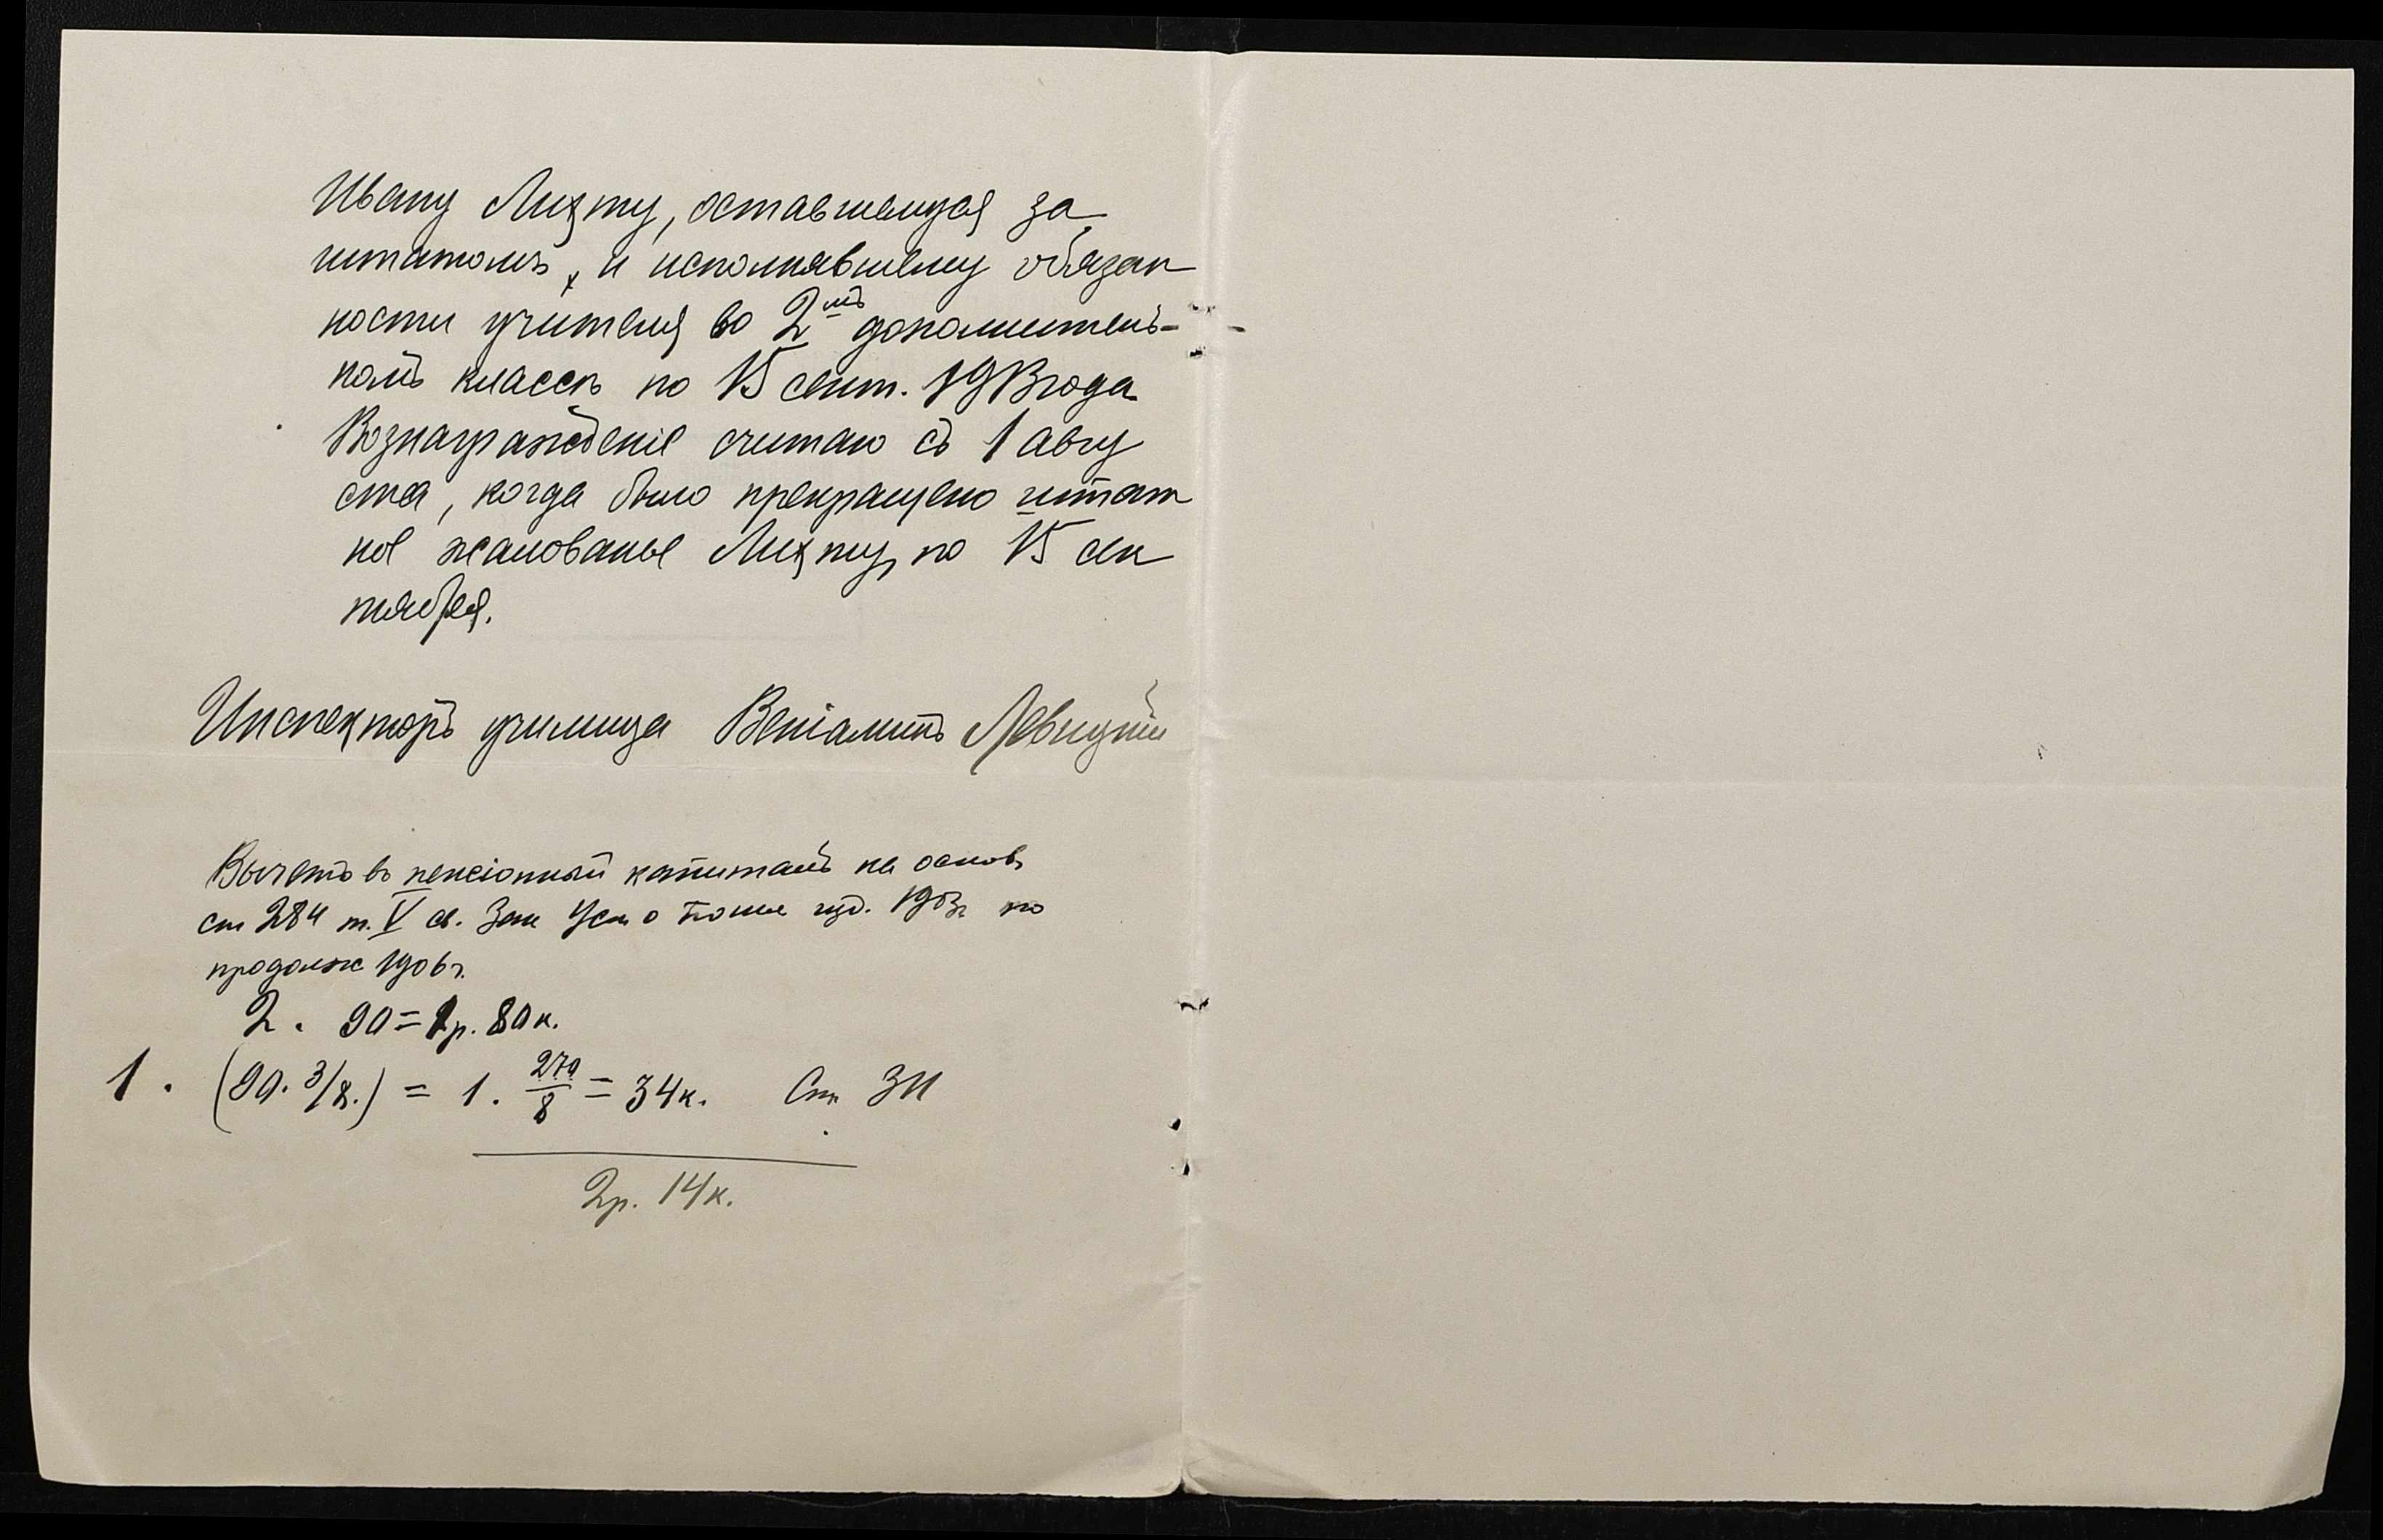 Ивану Лихту, оставшемуся за
штатомъ, и исполнявшему обязан
ности учителя во 2мъ дополнитель-
номъ классѣ по 15 сент. 1913 года
Вознагражденіе считаю съ 1 авгу
ста, когда было прекращено штат
ное жалованье Лихту, по 15 сен
тября.
Инспекторъ училища Веніаминъ Левицкій
Вычетъ въ пенсіонный капиталъ на основ.
ст 284 т. V св. Зак Уст о Пошл изд. 1903г по
продолж 1906г.
2. 90=1р. 80к.
1. (90. 3/8.) = 1. 270/8 = 34к. Ст.
2р. 14к.